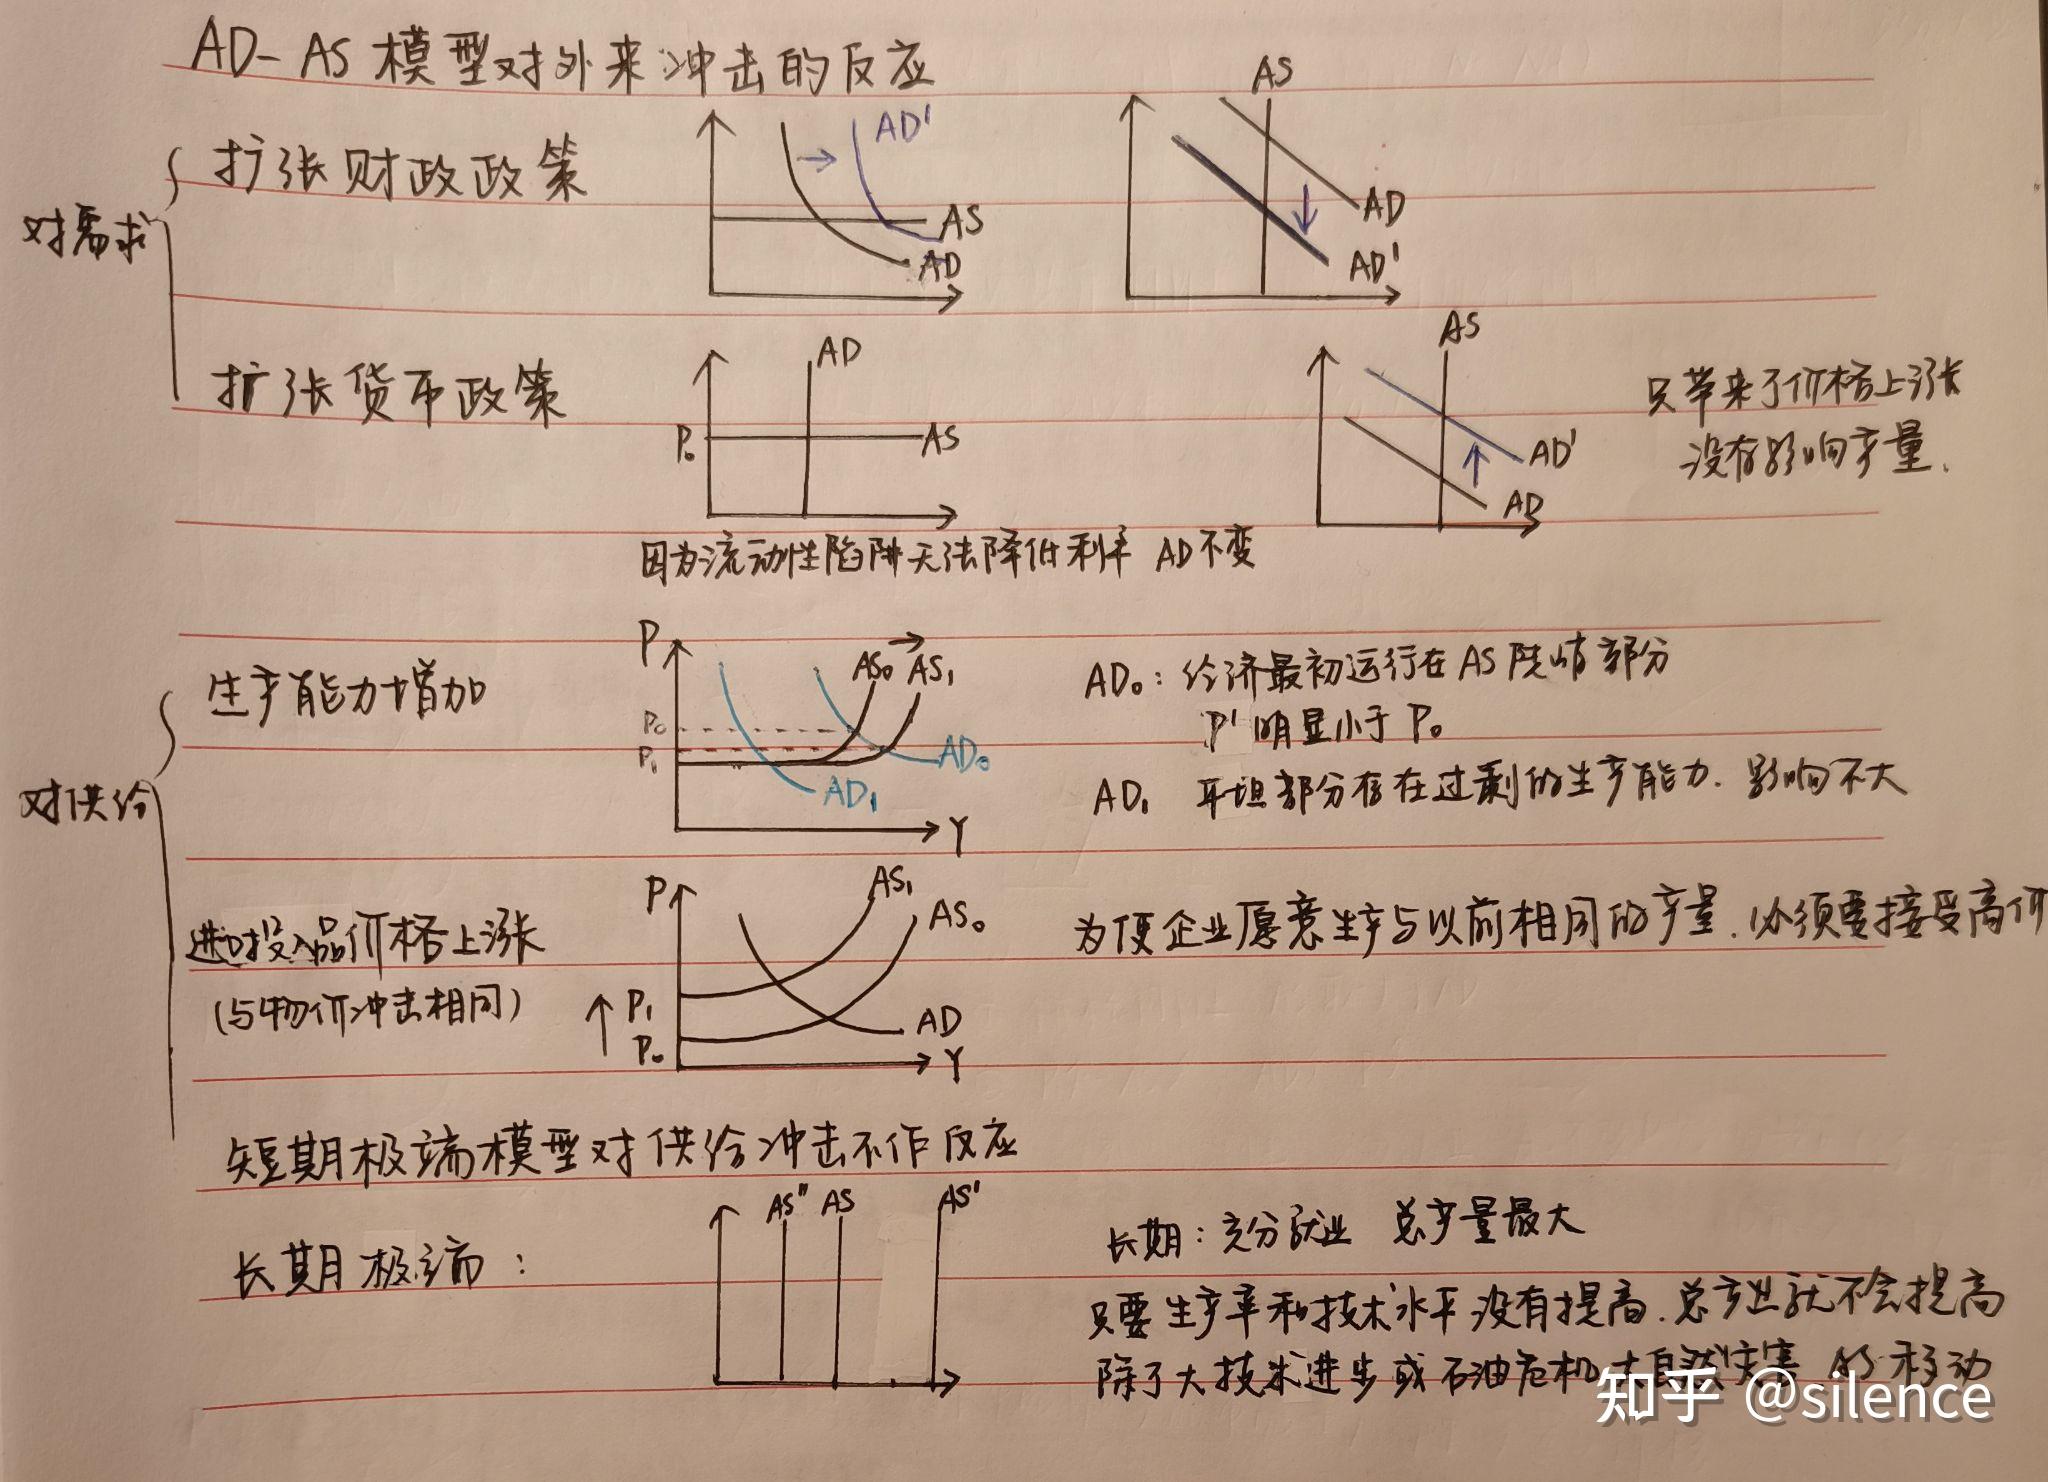 AD-AS 模型对外来冲击的反应
对需求
扩张财政政策
AD'
AS
AD
AS
AD
AD'
扩张货币政策
AD
P₀
AS
AS
AD'
AD
只带来了价格上涨
没有影响产量.
因为流动性陷阱无法降低利率 AD不变
对供给
生产能力增加
P
AS₀ AS₁
P₀
P₁
AD₀
AD₁
Y
AD₀: 经济最初运行在AS陡峭部分
P' 明显小于 P₀
AD₁ 平坦部分存在过剩的生产能力. 影响不大
进口投入品价格上涨
(与物价冲击相同)
P
AS₁
AS₀
P₁
P₀
AD
Y
为使企业愿意生产与以前相同的产量.必须要接受高价
短期极端模型对供给冲击不作反应
长期极端:
AS" AS AS'
长期: 充分就业 总产量最大
只要生产率和技术水平没有提高.总产出就不会提高
除了大技术进步或石油危机大自然灾害 AS移动
知乎 @silence